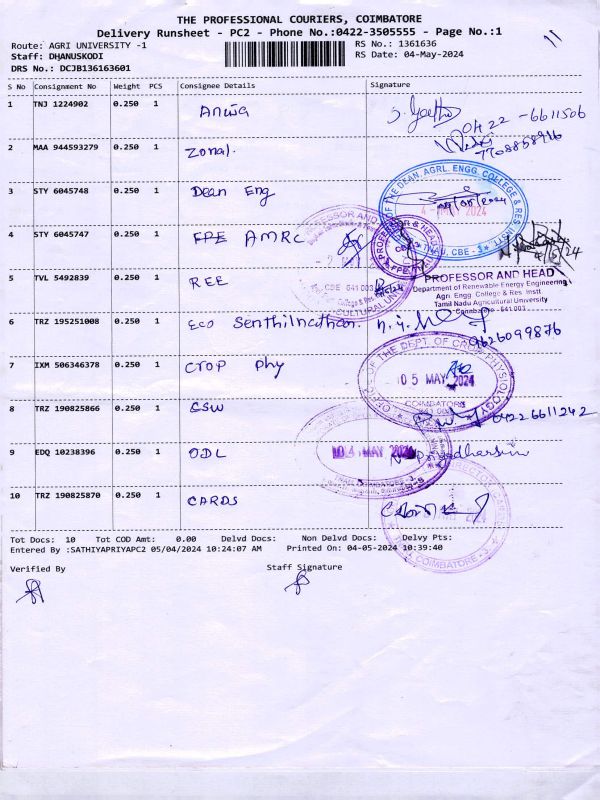 THE PROFESSIONAL COURIERS, COIMBATORE
Delivery Runsheet - PC2 - Phone No.:0422-3505555 - Page No.:1
Route: AGRI UNIVERSITY -1
RS No.: 1361636
11
Staff: DHANUSKODI
RS Date: 04-May-2024
DRS No.: DCJB136163601
S No Consignment No Weight PCS Consignee Details Signature
1 TNJ 1224902 0.250 1
0422-6611506
7708858916
2 MAA 944593279 0.250 1 Zonal.
3 STY 6045748 0.250 1 Dean Eng
OF THE DEAN, AGRL. ENGG. COLLEGE & RES. INSTT.
TNAU, CBE - 3
4 STY 6045747 0.250 1 FPE AMRC
5 TVL 5492839 0.250 1 REE
PROFESSOR AND HEAD
Department of Renewable Energy Engineering
Agri. Engg. College & Res. Instt.
Tamil Nadu Agricultural University
Coimbatore - 641 003
6 TRZ 195251008 0.250 1 Eco Senthilnathan
9626099876
7 IXM 506346378 0.250 1 Crop Phy
OF THE DEPT. OF CROP PHYSIOLOGY
05 MAY 2024
COIMBATORE
8 TRZ 190825866 0.250 1 CSW
04226611242
9 EDQ 10238396 0.250 1 ODL
04 MAY 2024
10 TRZ 190825870 0.250 1 CARDS
COIMBATORE - 3
Tot Docs: 10 Tot COD Amt: 0.00 Delvd Docs: Non Delvd Docs: Delvy Pts:
Entered By :SATHIYAPRIYAPC2 05/04/2024 10:24:07 AM Printed On: 04-05-2024 10:39:40
Verified By Staff Signature